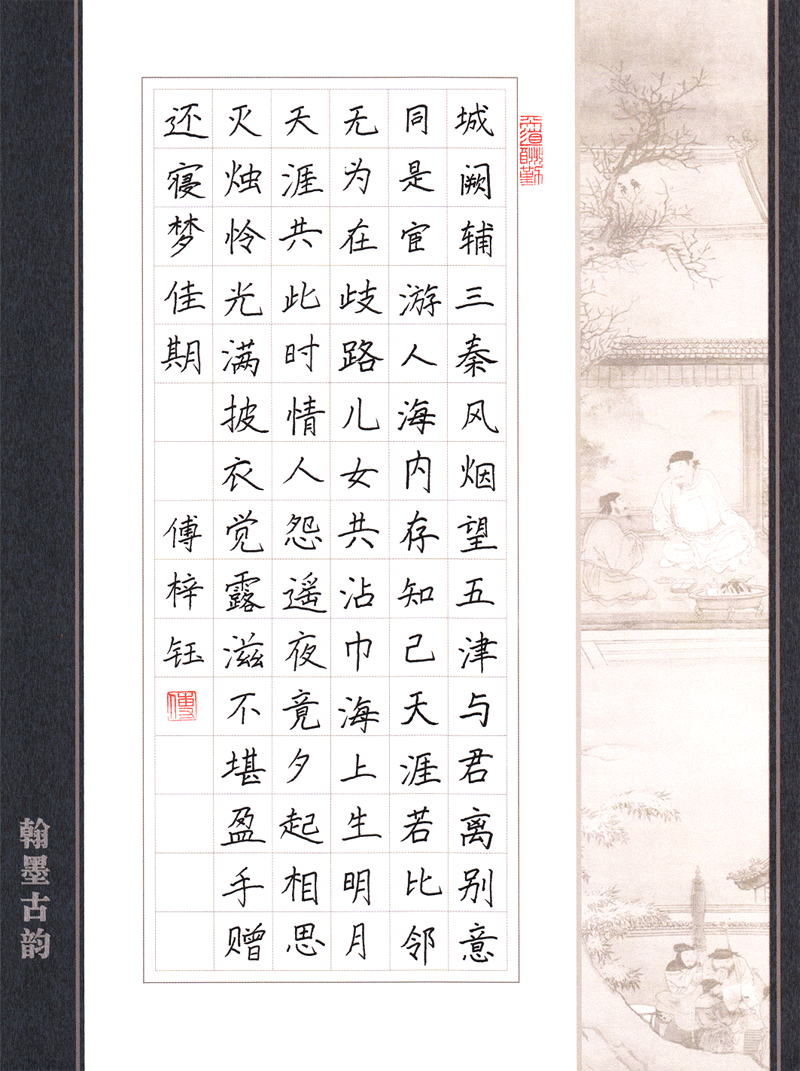 天道酬勤
城阙辅三秦风烟望五津与君离别意
同是宦游人海内存知己天涯若比邻
无为在歧路儿女共沾巾海上生明月
天涯共此时情人怨遥夜竟夕起相思
灭烛怜光满披衣觉露滋不堪盈手赠
还寝梦佳期 傅梓钰
傅
翰墨古韵